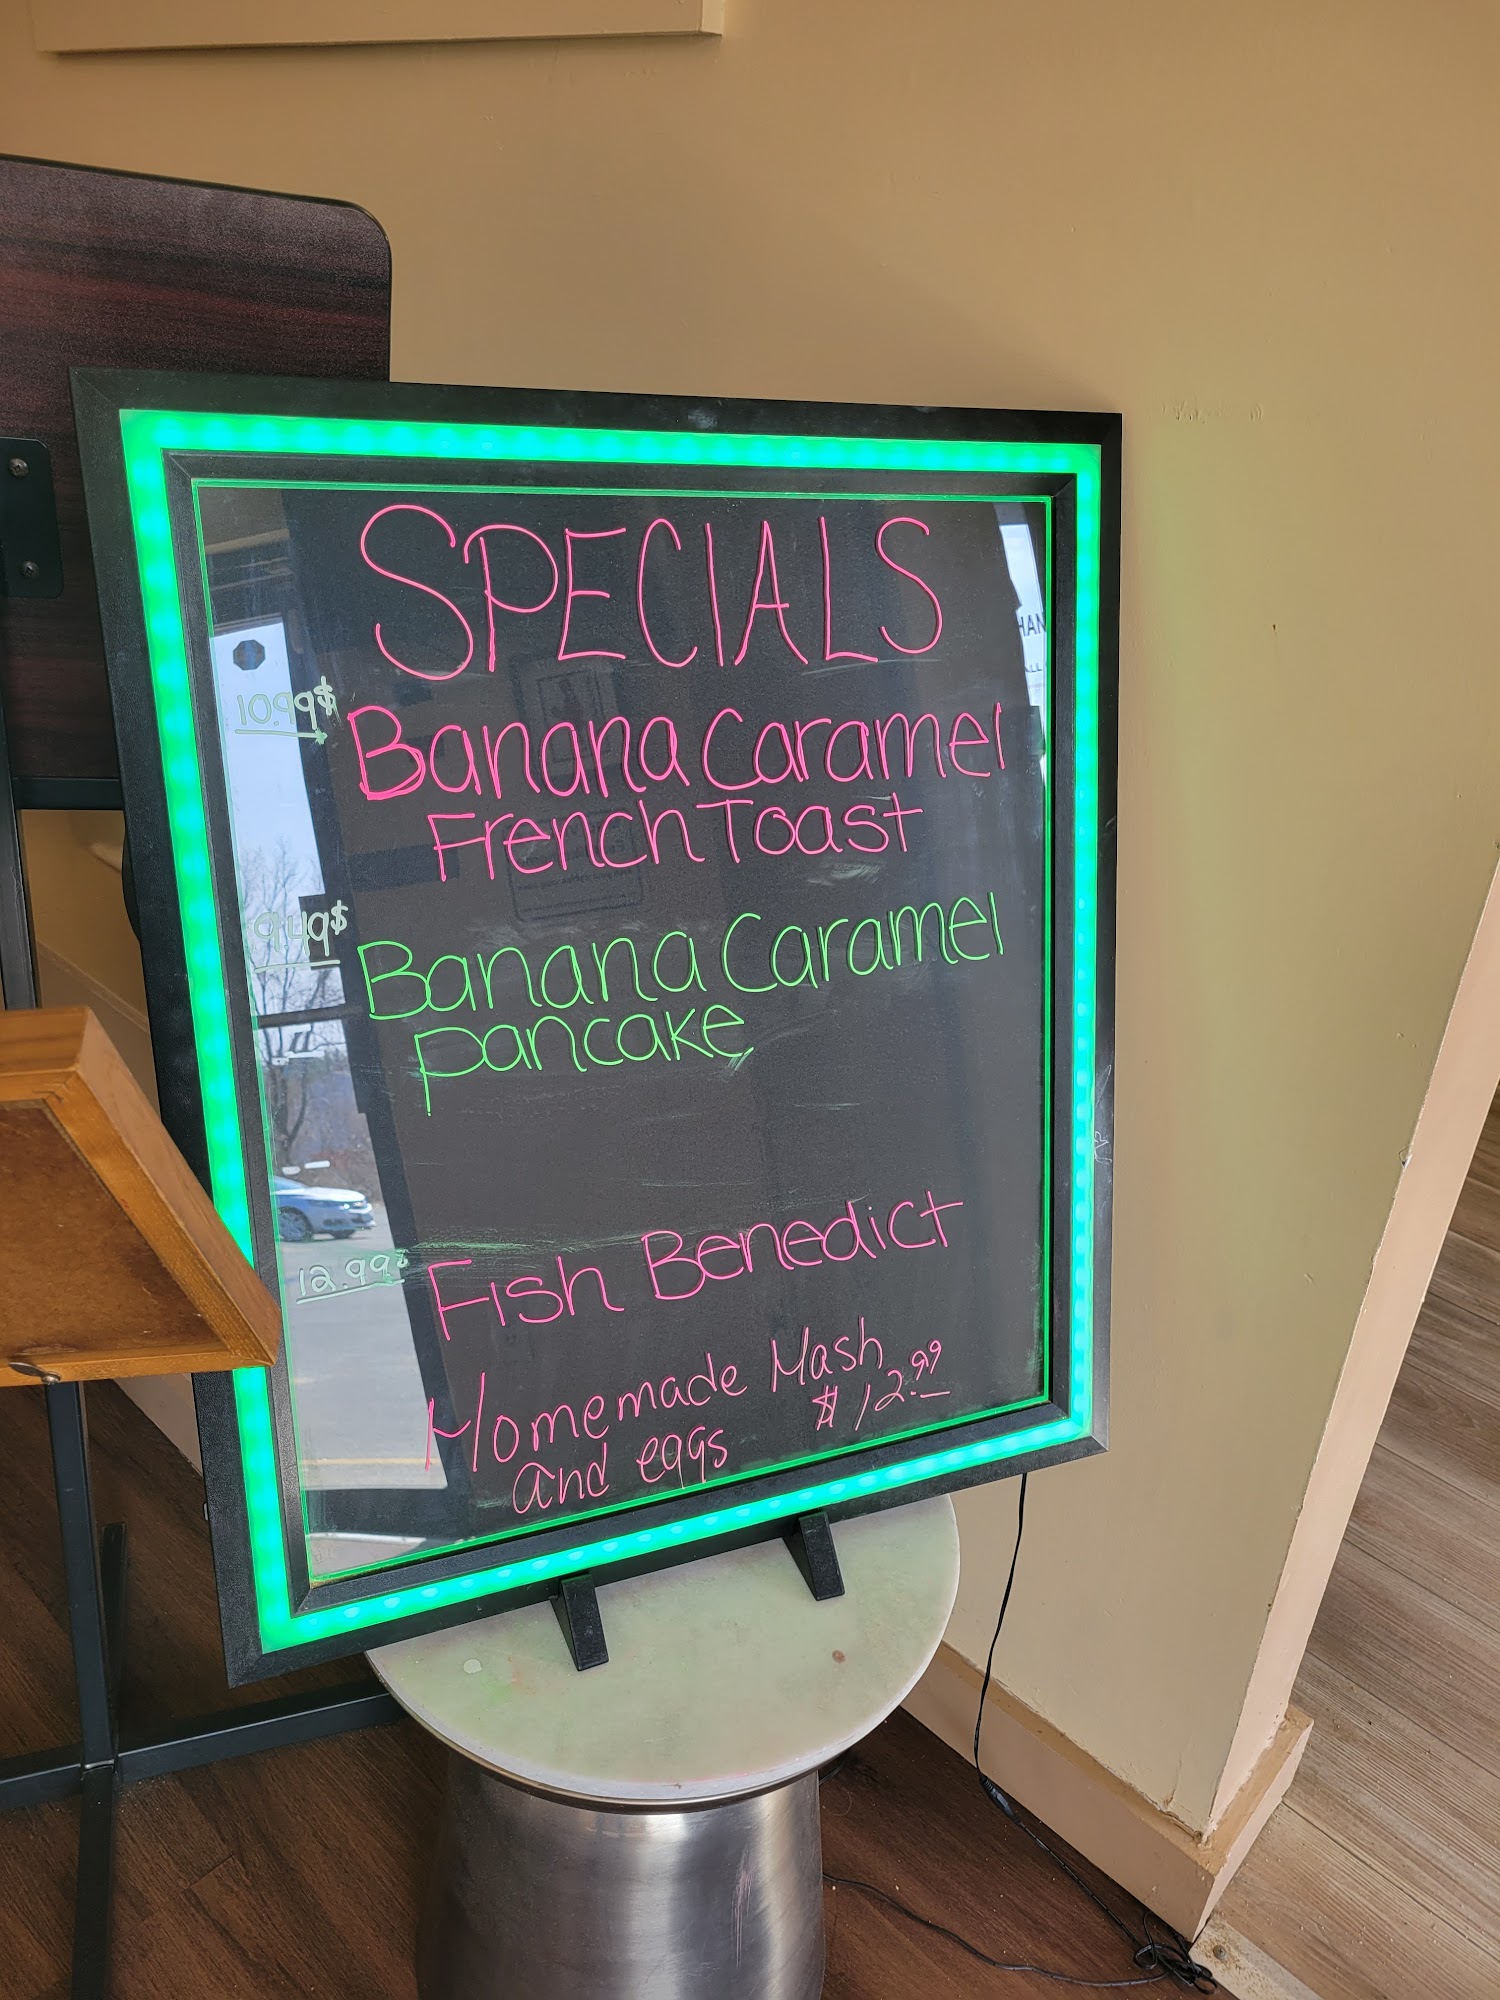 SPECIALS
10.99$ Banana Caramel
French Toast
9.49$ Banana Caramel
pancake
12.99$ Fish Benedict
Homemade Hash
and eggs $12.99